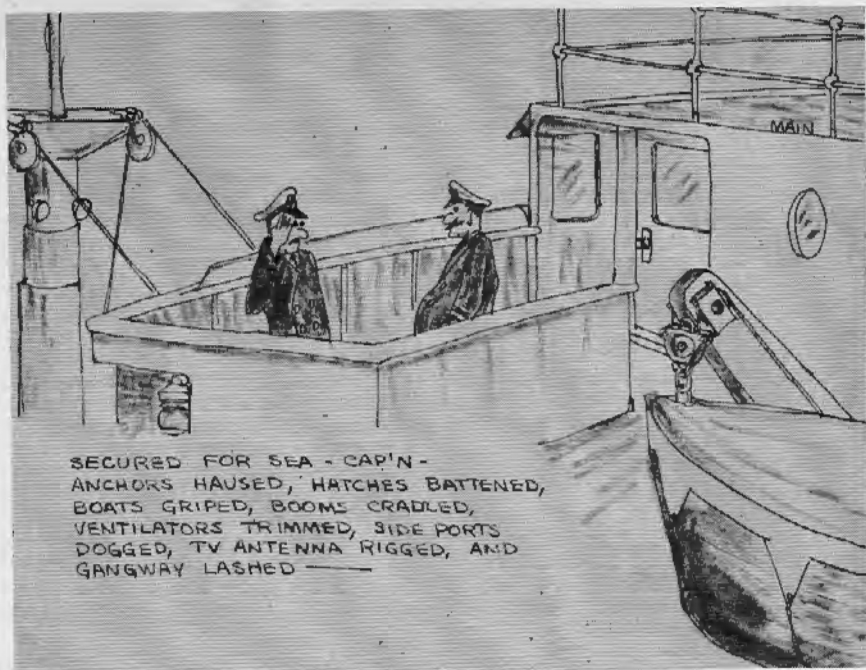 MAIN
SECURED FOR SEA - CAP'N -
ANCHORS HAUSED, HATCHES BATTENED,
BOATS GRIPED, BOOMS CRADLED,
VENTILATORS TRIMMED, SIDE PORTS
DOGGED, TV ANTENNA RIGGED, AND
GANGWAY LASHED ——